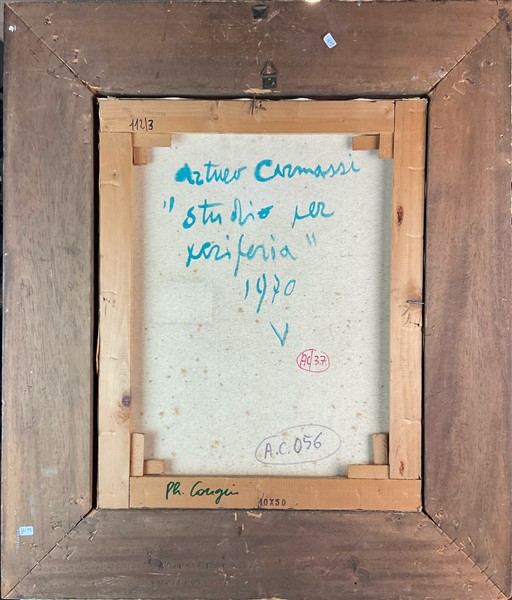 112/3
Arturo Carmassi
"studio per
periferia"
1970
V
AC 37
A.C. 056
Ph. Cougin
40X50